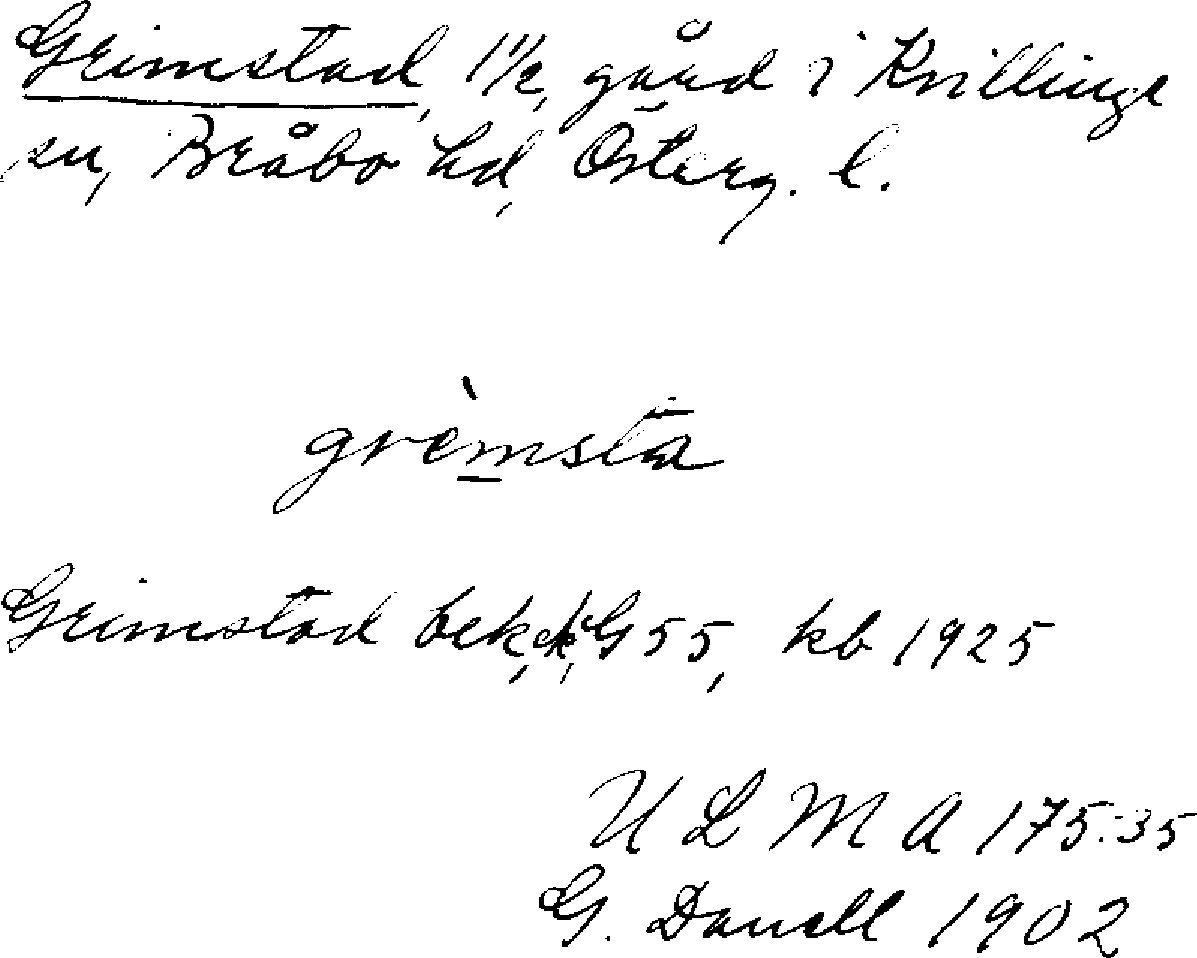 Grimstad, 1 1/2, gård i Kvillinge
sn, Bråbo hd, Österg. l.
grèmsta
Grimstad bek, ek, G 55, kb 1925
U L M A 175:35
G. Danell 1902